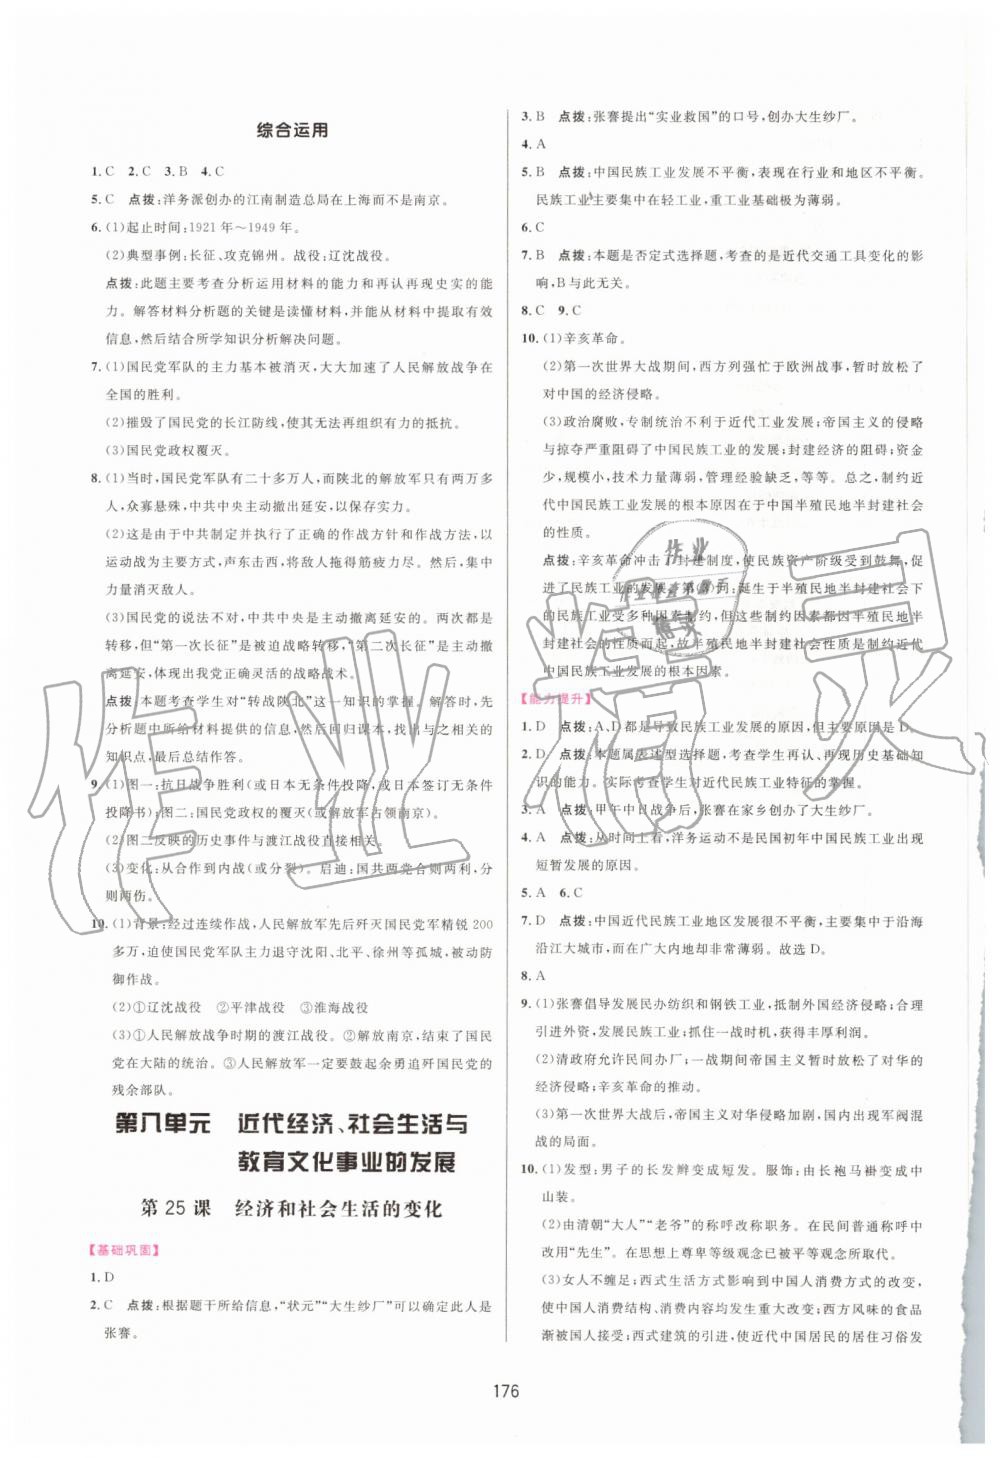 综合运用
1. C　2. C　3. B　4. C
5. C　点拨:洋务派创办的江南制造总局在上海而不是南京。
6. (1)起止时间:1921 年～1949 年。
(2)典型事例:长征、攻克锦州。战役:辽沈战役。
点拨:此题主要考查分析运用材料的能力和再认再现史实的能
力。解答材料分析题的关键是读懂材料,并能从材料中提取有效
信息,然后结合所学知识分析解决问题。
7. (1)国民党军队的主力基本被消灭,大大加速了人民解放战争在
全国的胜利。
(2)摧毁了国民党的长江防线,使其无法再组织有效的抵抗。
(3)国民党政权覆灭。
8. (1)当时,国民党军队有二十多万人,而陕北的解放军只有两万多
人,众寡悬殊,中共中央主动撤出延安,以保存实力。
(2)这是由于中共制定并执行了正确的作战方针和作战方法:以
运动战为主要方式,声东击西,将敌人拖得筋疲力尽。然后,集中
力量消灭敌人。
(3)国民党的说法不对,中共中央是主动撤离延安的。两次都是
转移,但“第一次长征”是被动战略转移,“第二次长征”是主动撤
离延安,体现出我党正确灵活的战略战术。
点拨:本题考查学生对“转战陕北”这一知识的掌握。解答时,先
分析题中所给材料提供的信息,然后回归课本,找出与之相关的
知识点,最后总结作答。
9. (1)图一:抗日战争胜利(或日本无条件投降,或日本签订无条件
投降书);图二:国民党政权的覆灭(或解放军占领南京)。
(2)图二反映的历史事件与渡江战役直接相关。
(3)变化:从合作到内战(或分裂)。启迪:国共两党合则两利,分
则两伤。
10. (1)背景:经过连续作战,人民解放军先歼灭国民党军精锐 200
多万,迫使国民党军队主力退守沈阳、北平、徐州等孤城,被动防
御作战。
(2)①辽沈战役　②平津战役　③淮海战役
(3)①人民解放战争时期的渡江战役。②解放南京,结束了国民
党在大陆的统治。③人民解放军一定要鼓起余勇追歼国民党的
残余部队。
第八单元　近代经济、社会生活与
教育文化事业的发展
第 25 课　经济和社会生活的变化
【基础巩固】
1. D
2. C　点拨:根据题干所给信息,“状元”“大生纱厂”可以确定此人是
张謇。
3. B　点拨:张謇提出“实业救国”的口号,创办大生纱厂。
4. A
5. B　点拨:中国民族工业发展不平衡,表现在行业和地区不平衡。
民族工业主要集中在轻工业,重工业基础极为薄弱。
6. C
7. B　点拨:本题是否定式选择题,考查的是近代交通工具变化的影
响,B 与此无关。
8. C　9. C
10. (1)辛亥革命。
(2)第一次世界大战期间,西方列强忙于欧洲战事,暂时放松了
对中国的经济侵略。
(3)政治腐败,专制统治不利于近代工业发展;帝国主义的侵略
与掠夺严重阻碍了中国民族工业的发展;封建经济的阻碍;资金
少,规模小,技术力量薄弱,管理经验缺乏,等等。总之,制约近
代中国民族工业发展的根本原因在于中国半殖民地半封建社会
的性质。
点拨:辛亥革命冲击了封建制度,使民族资产阶级受到鼓舞,促
进了民族工业的发展。第(3)问:诞生于半殖民地半封建社会下
的民族工业受多种因素制约,但这些制约因素都因半殖民地半
封建社会的性质而起,故半殖民地半封建社会性质是制约近代
中国民族工业发展的根本因素。
【能力提升】
1. D　点拨:A、D 都是导致民族工业发展的原因,但主要原因是 D。
2. D　点拨:本题属表述型选择题,考查学生再认、再现历史基础知
识的能力。实际考查学生对近代民族工业特征的掌握。
3. A　点拨:甲午中日战争后,张謇在家乡创办了大生纱厂。
4. A　点拨:从时间上看,洋务运动不是民国初年中国民族工业出现
短暂发展的原因。
5. A　6. C
7. D　点拨:中国近代民族工业地区发展很不平衡,主要集中于沿海
沿江大城市,而在广大内地却非常薄弱。故选 D。
8. A
9. (1)张謇倡导发展民办纺织和钢铁工业,抵制外国经济侵略;合理
引进外资,发展民族工业;抓住一战时机,获得丰厚利润。
(2)清政府允许民间办厂;一战期间帝国主义暂时放松了对华的
经济侵略;辛亥革命的推动。
(3)第一次世界大战后,帝国主义对华侵略加剧,国内出现军阀混
战的局面。
10. (1)发型:男子的长发辫变成短发。服饰:由长袍马褂变成中
山装。
(2)由清朝“大人”“老爷”的称呼改称职务。在民间普通称呼中
改用“先生”。在思想上尊卑等级观念已被平等观念所取代。
(3)女人不缠足;西式生活方式影响到中国人消费方式的改变,
使中国的消费结构、消费内容均发生重大改变;西方风味的食品
渐被国人接受;西式建筑的引进,使近代中国居民的居住习俗发
176